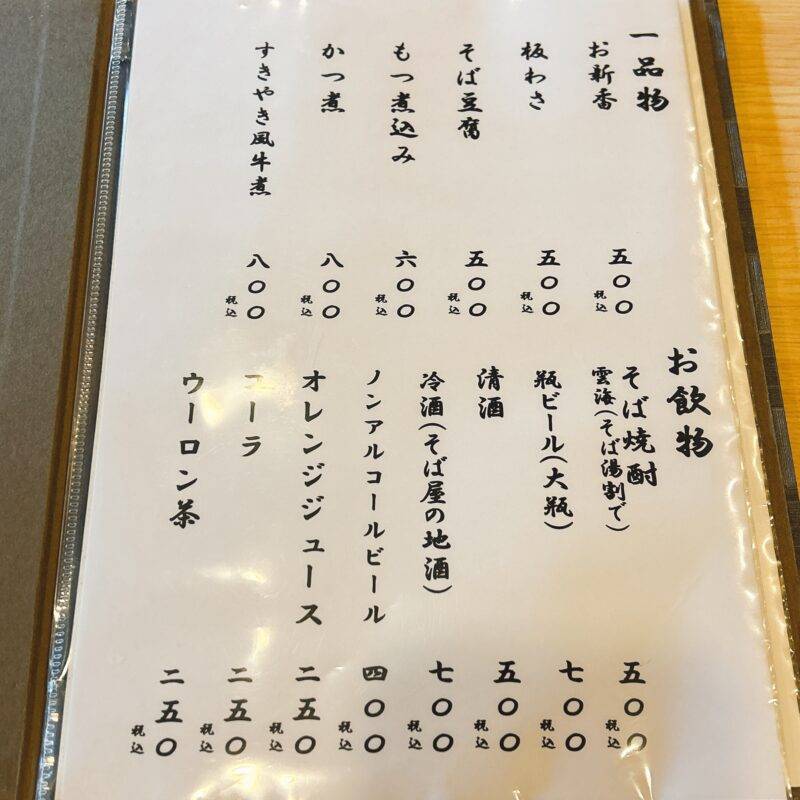 一品物
お新香 五〇〇 税込
板わさ 五〇〇 税込
そば豆腐 五〇〇 税込
もつ煮込み 六〇〇 税込
かつ煮 八〇〇 税込
すきやき風牛煮 八〇〇 税込
お飲物
そば焼酎
雲海(そば湯割で) 五〇〇 税込
瓶ビール(大瓶) 七〇〇 税込
清酒 五〇〇 税込
冷酒(そば屋の地酒) 七〇〇 税込
ノンアルコールビール 四〇〇 税込
オレンジジュース 二五〇 税込
コーラ 二五〇 税込
ウーロン茶 二五〇 税込